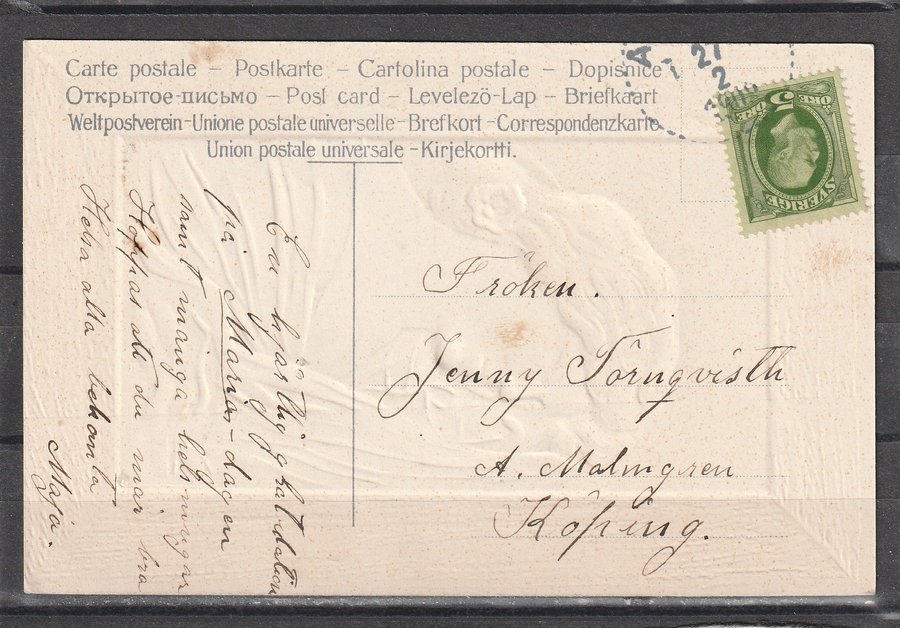 Carte postale – Postkarte – Cartolina postale – Dopisnice
Открытое-письмо – Post card – Levelezö-Lap – Briefkaart
Weltpostverein-Unione postale universelle-Brefkort-Correspondenzkarte
Union postale universale-Kirjekortti.
27
2
5
ÖRE
ÖRE
SVERIGE
En hjärtlig gratulation
på Maria-dagen
samt många helsningar
Hoppas att du mår bra
Helsa alla bekanta
Maja.
Fröken.
Jenny Törnqvisth
A. Malmgren
Köping.